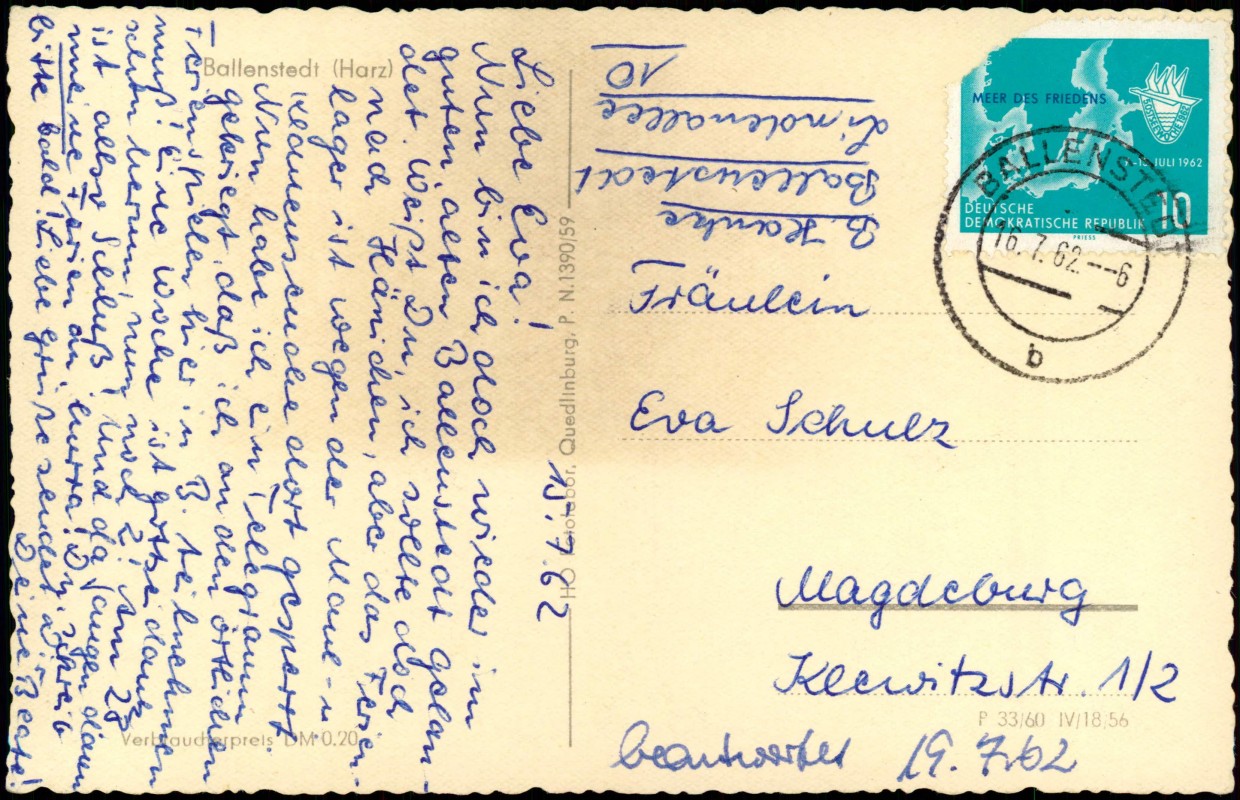 Ballenstedt (Harz)
15.7.62
Liebe Eva!
Nun bin ich doch wieder im
guten alten Ballenstedt gelan-
det. Weißt Du, ich sollte doch
nach Hänichen, aber das Ferien-
lager ist wegen der Maul- u.
Klauenseuche dort gesperrt.
Nun habe ich ein Telegramm
gekriegt, daß ich an den örtlichen
Ferienspielen hier in B. teilnehmen
muß! Eine Woche ist gottseidank
schon herum, nun noch 2! Am 28.
ist also Schluß! Und da fangen dann
meine Ferien an, hurra! Du, schreib
bitte bald! Liebe Grüße sendet Dir
Deine Beate!
Verbraucherpreis DM 0.20
HO Fotolabor, Quedlinburg, P. N. 1390/59
B. Hanke
Ballenstedt
Lindenallee
10
MEER DES FRIEDENS
OSTSEEWOCHE 1962
-15. JULI 1962
DEUTSCHE
DEMOKRATISCHE REPUBLIK
10
PRIESS
BALLENSTEDT
16.7.62.--6
b
Fräulein
Eva Schulz
Magdeburg
Klewitzstr. 1/2
P 33/60 IV/18,56
beantwortet 19.7.62